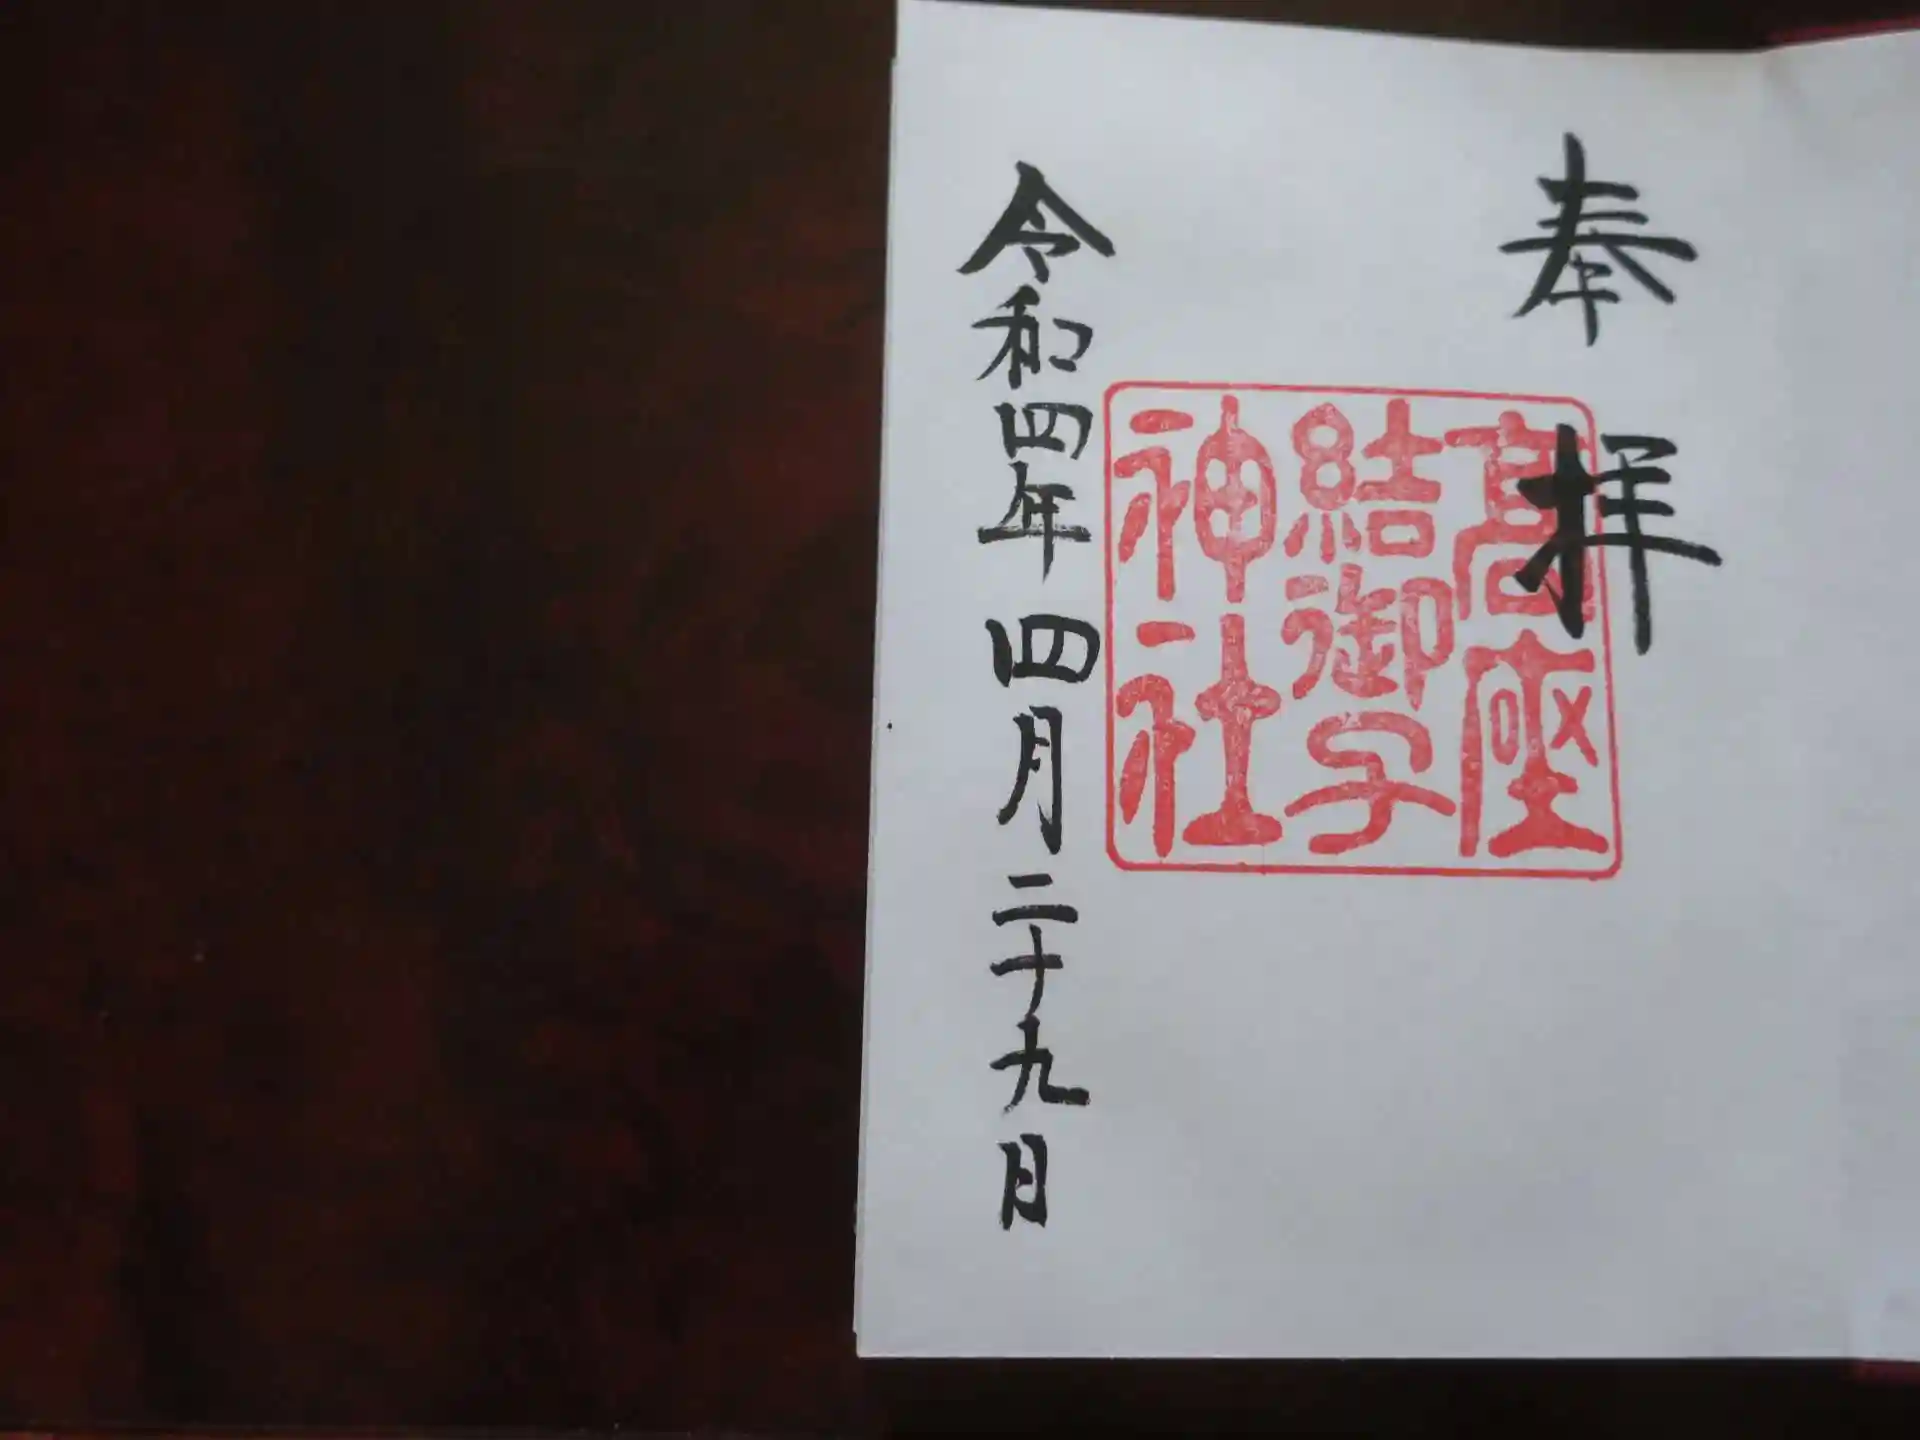 奉拝
高座
結御子
神社
令和四年四月二十九日